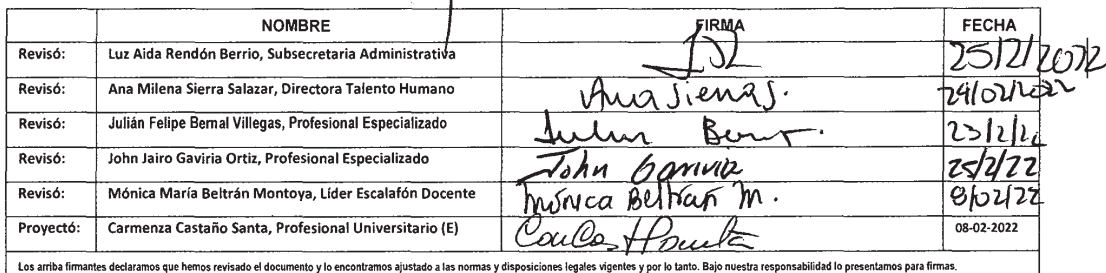 NOMBRE FIRMA FECHA
Revisó: Luz Aida Rendón Berrio, Subsecretaria Administrativa 25/2/2022
Revisó: Ana Milena Sierra Salazar, Directora Talento Humano Ana Sierra S. 24/02/2022
Revisó: Julián Felipe Bernal Villegas, Profesional Especializado Julian 23/2/22
Revisó: John Jairo Gaviria Ortiz, Profesional Especializado John Gaviria 25/2/22
Revisó: Mónica María Beltrán Montoya, Líder Escalafón Docente Mónica Beltrán M. 8/02/22
Proyectó: Carmenza Castaño Santa, Profesional Universitario (E) 08-02-2022
Los arriba firmantes declaramos que hemos revisado el documento y lo encontramos ajustado a las normas y disposiciones legales vigentes y por lo tanto. Bajo nuestra responsabilidad lo presentamos para firmas.